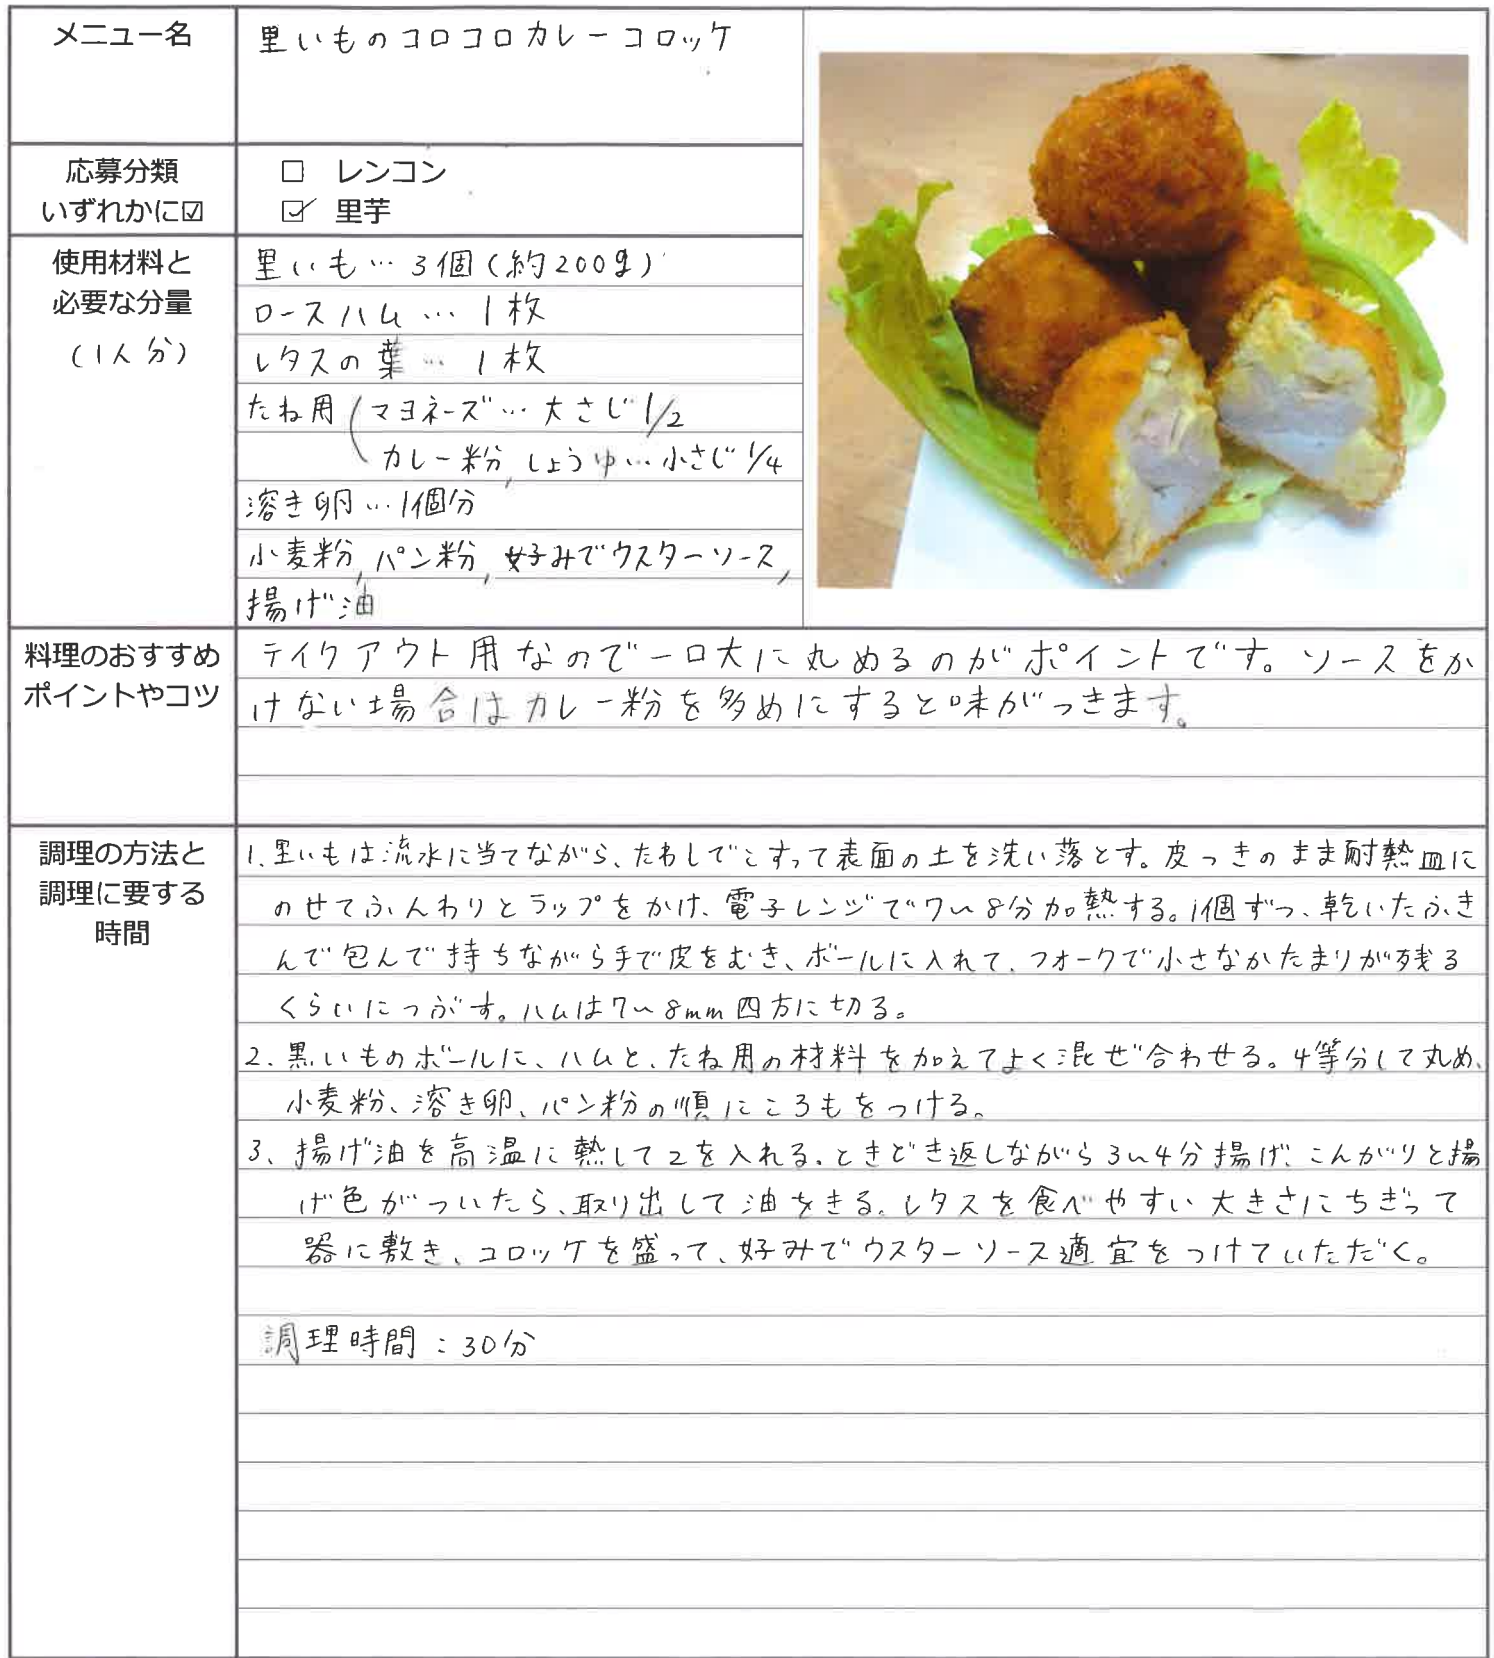 メニュー名
里いものコロコロカレーコロッケ
応募分類
いずれかに☑
□ レンコン
☑ 里芋
使用材料と
必要な分量
(1人分)
里いも…3個(約200g)
ロースハム…1枚
レタスの葉…1枚
たね用(マヨネーズ…大さじ1/2
カレー粉,しょうゆ…小さじ1/4
溶き卵…1個分
小麦粉,パン粉,好みでウスターソース,
揚げ油
料理のおすすめ
ポイントやコツ
テイクアウト用なので一口大に丸めるのがポイントです。ソースをか
けない場合はカレー粉を多めにすると味がつきます。
調理の方法と
調理に要する
時間
1.里いもは流水に当てながら、たわしでこすって表面の土を洗い落とす。皮つきのまま耐熱皿に
のせてふんわりとラップをかけ、電子レンジで7〜8分加熱する。1個ずつ、乾いたふき
んで包んで持ちながら手で皮をむき、ボールに入れて、フォークで小さなかたまりが残る
くらいにつぶす。ハムは7〜8mm四方に切る。
2.黒いものボールに、ハムと、たね用の材料を加えてよく混ぜ合わせる。4等分して丸め、
小麦粉、溶き卵、パン粉の順にころもをつける。
3、揚げ油を高温に熱して2を入れる。ときどき返しながら3〜4分揚げ、こんがりと揚
げ色がついたら、取り出して油をきる。レタスを食べやすい大きさにちぎって
器に敷き、コロッケを盛って、好みでウスターソース適宜をつけていただく。
調理時間:30分